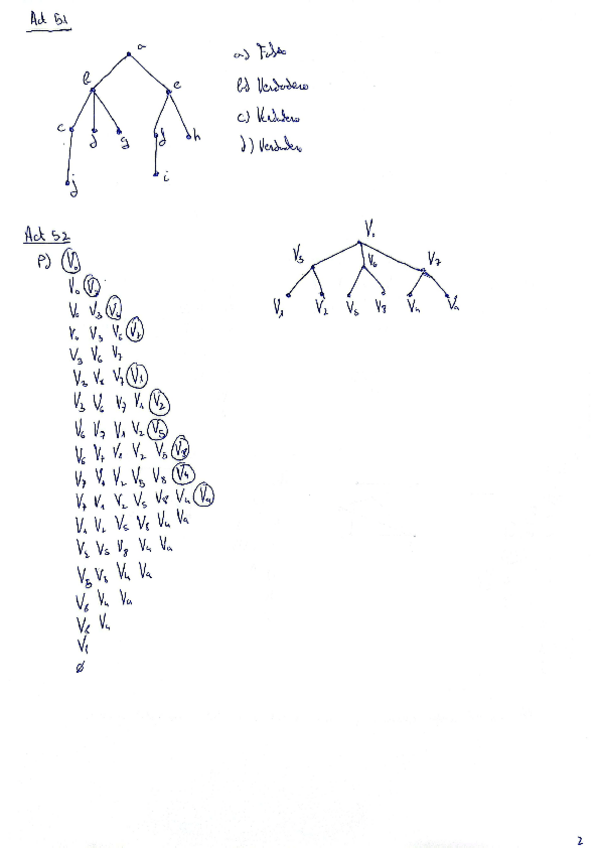 Act 51
a
b e
c d g f h
j i
a) Falso
b) Verdadero
c) Verdadero
d) Verdadero
Act 52
P) V₀
V₀ V₃
V₀ V₃ V₆
V₀ V₃ V₆ V₇
V₃ V₆ V₇
V₃ V₆ V₇ V₁
V₃ V₆ V₇ V₁ V₂
V₆ V₇ V₁ V₂ V₅
V₆ V₇ V₁ V₂ V₅ V₈
V₇ V₁ V₂ V₅ V₈ V₄
V₇ V₁ V₂ V₅ V₈ V₄ V₉
V₁ V₂ V₅ V₈ V₄ V₉
V₂ V₅ V₈ V₄ V₉
V₅ V₈ V₄ V₉
V₈ V₄ V₉
∅
V₀
V₃ V₆ V₇
V₁ V₂ V₅ V₈ V₄ V₉
2